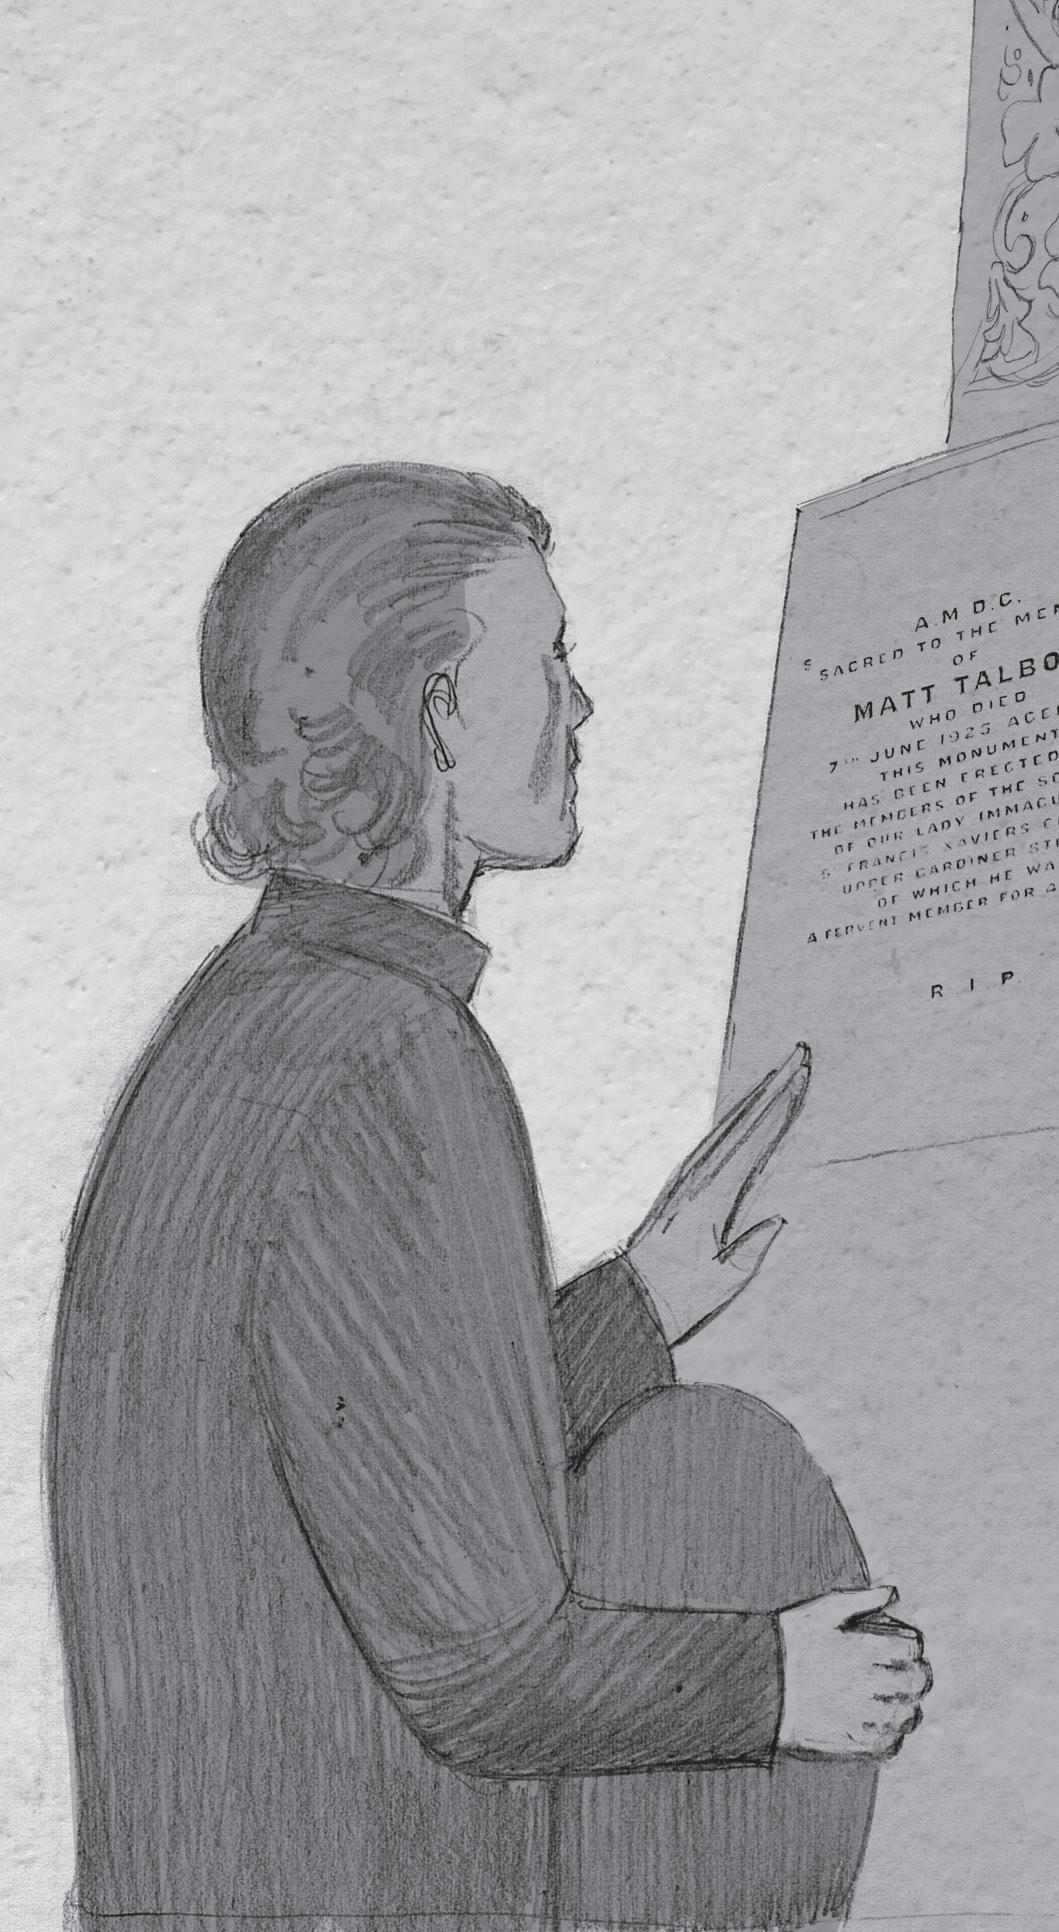 A.M.D.G.
SACRED TO THE MEM
OF
MATT TALBO
WHO DIED
7TH JUNE 1925 AGED
THIS MONUMENT
HAS BEEN ERECTED
THE MEMBERS OF THE SO
OF OUR LADY IMMACU
S FRANCIS XAVIERS C
UPPER GARDINER ST
OF WHICH HE WA
A FERVENT MEMBER FOR
R.I.P.